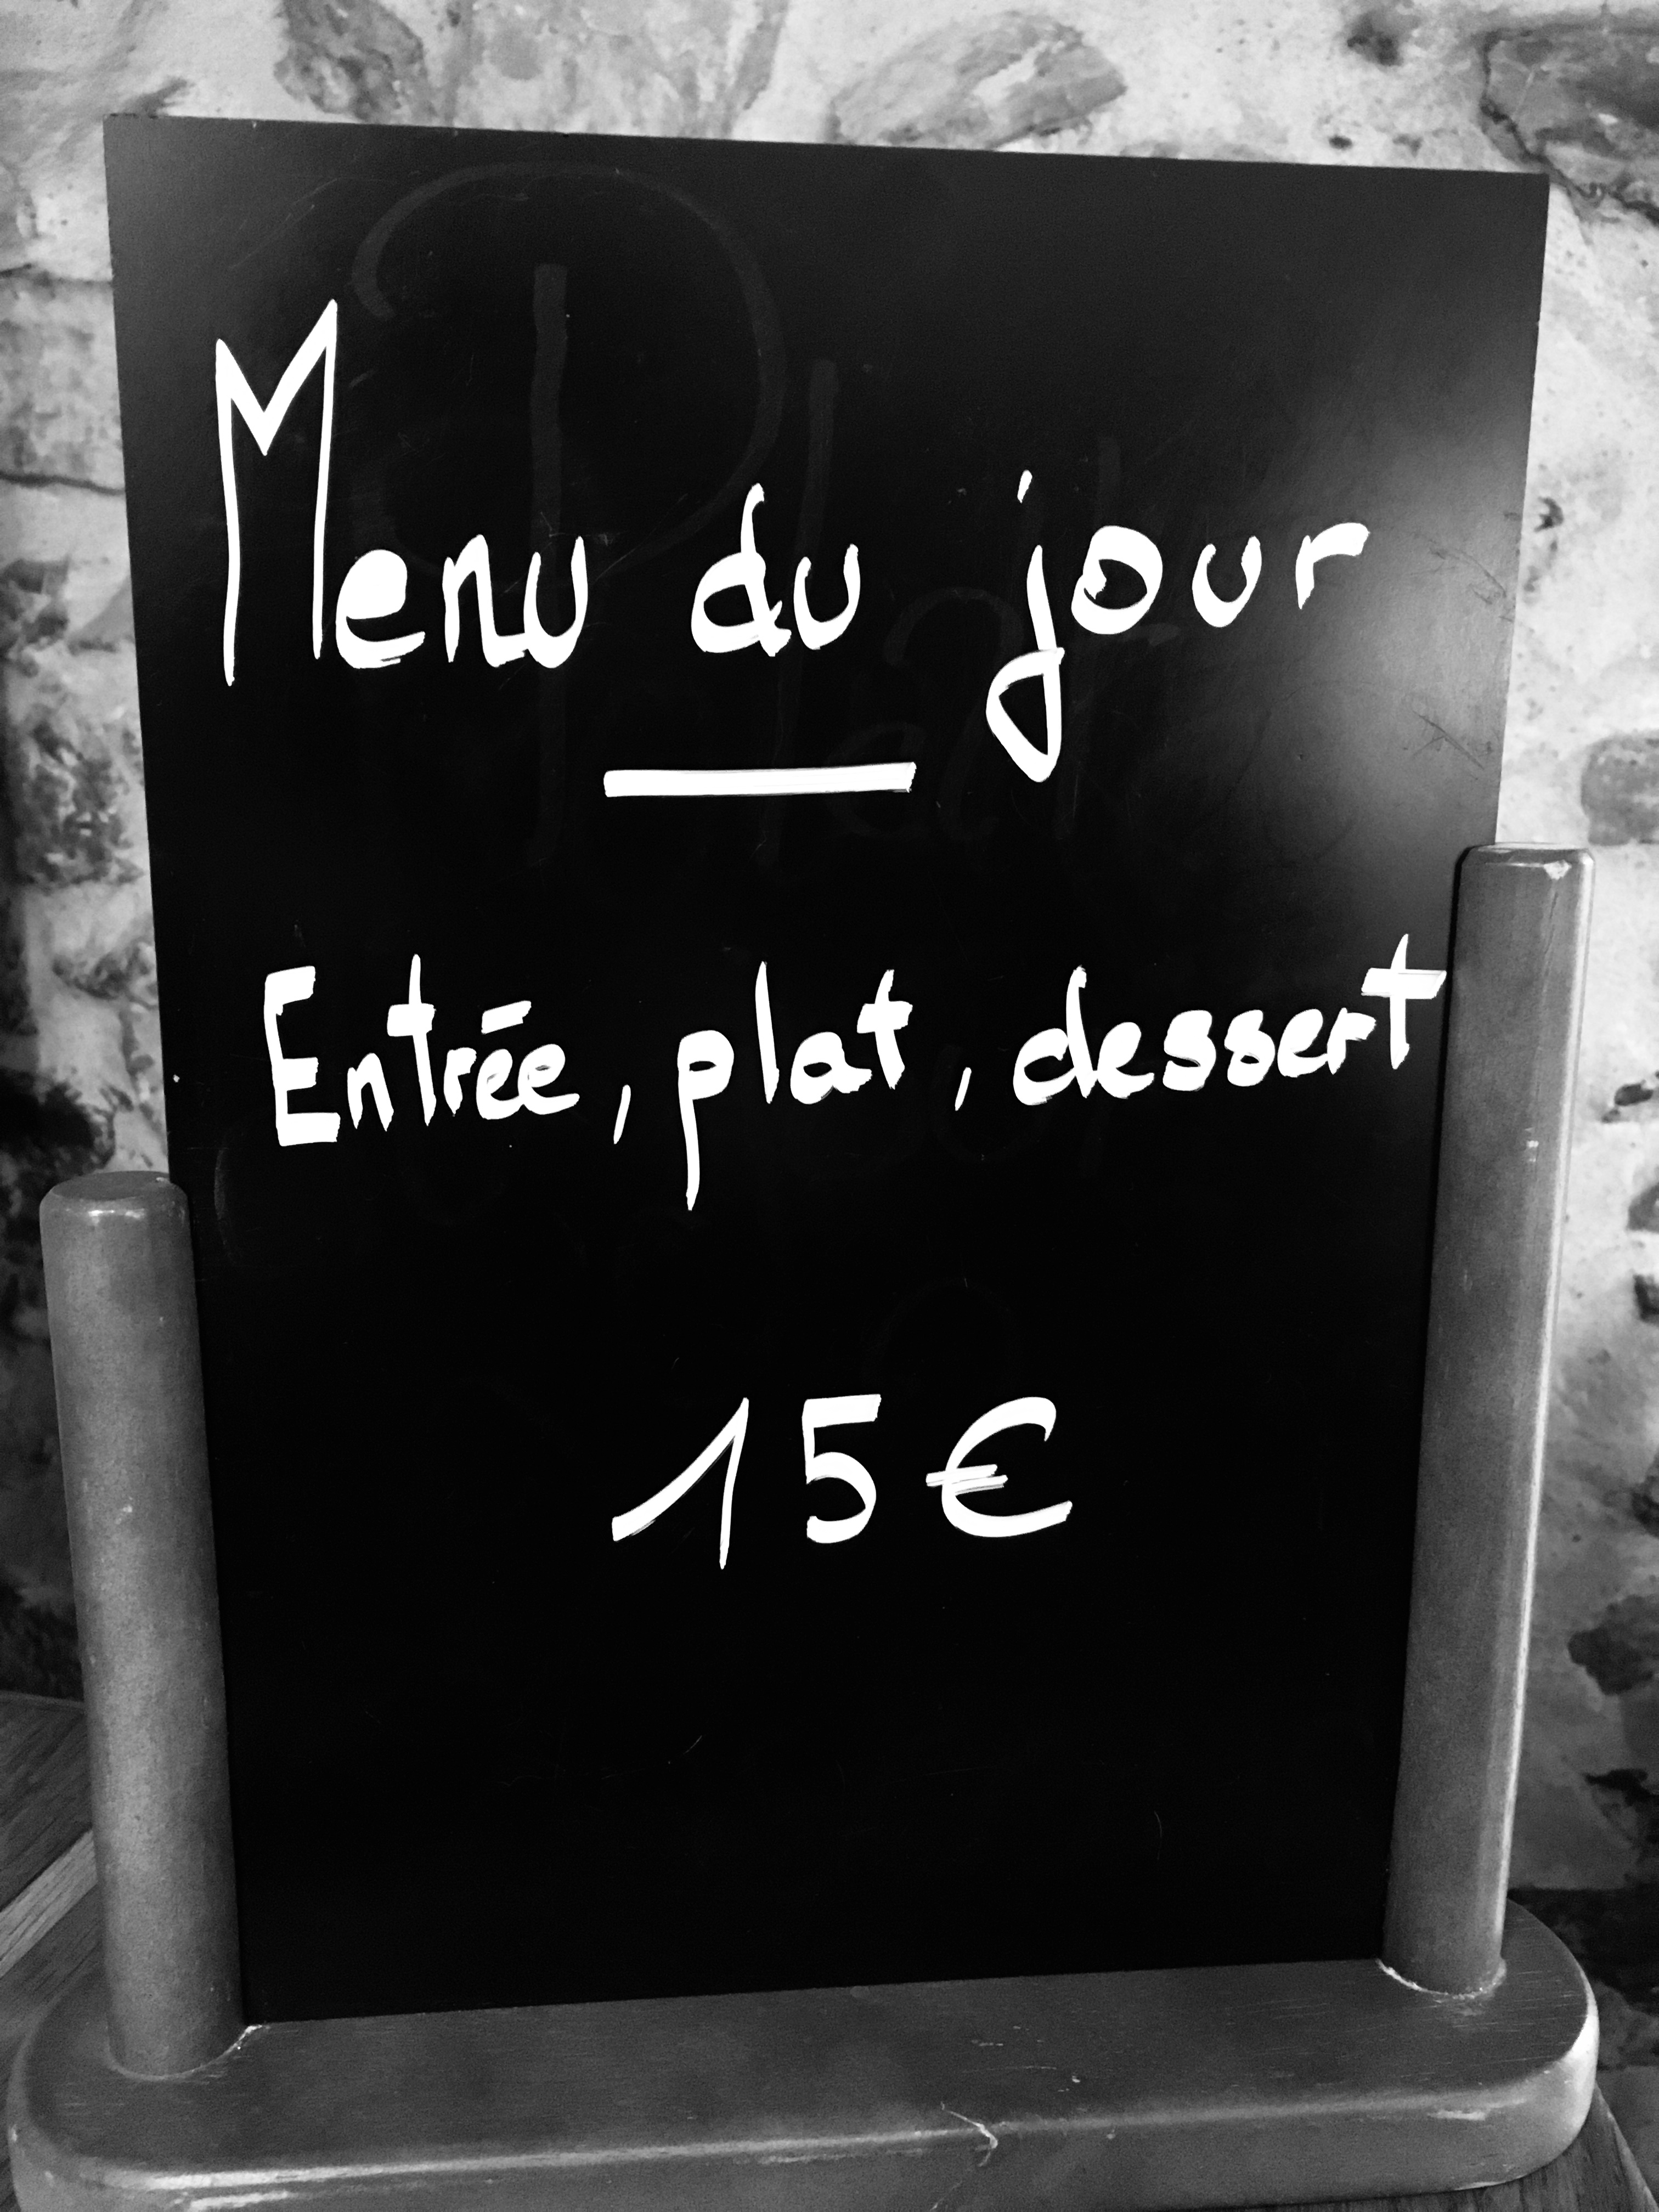 Menu du jour
Entrée, plat, dessert
15€